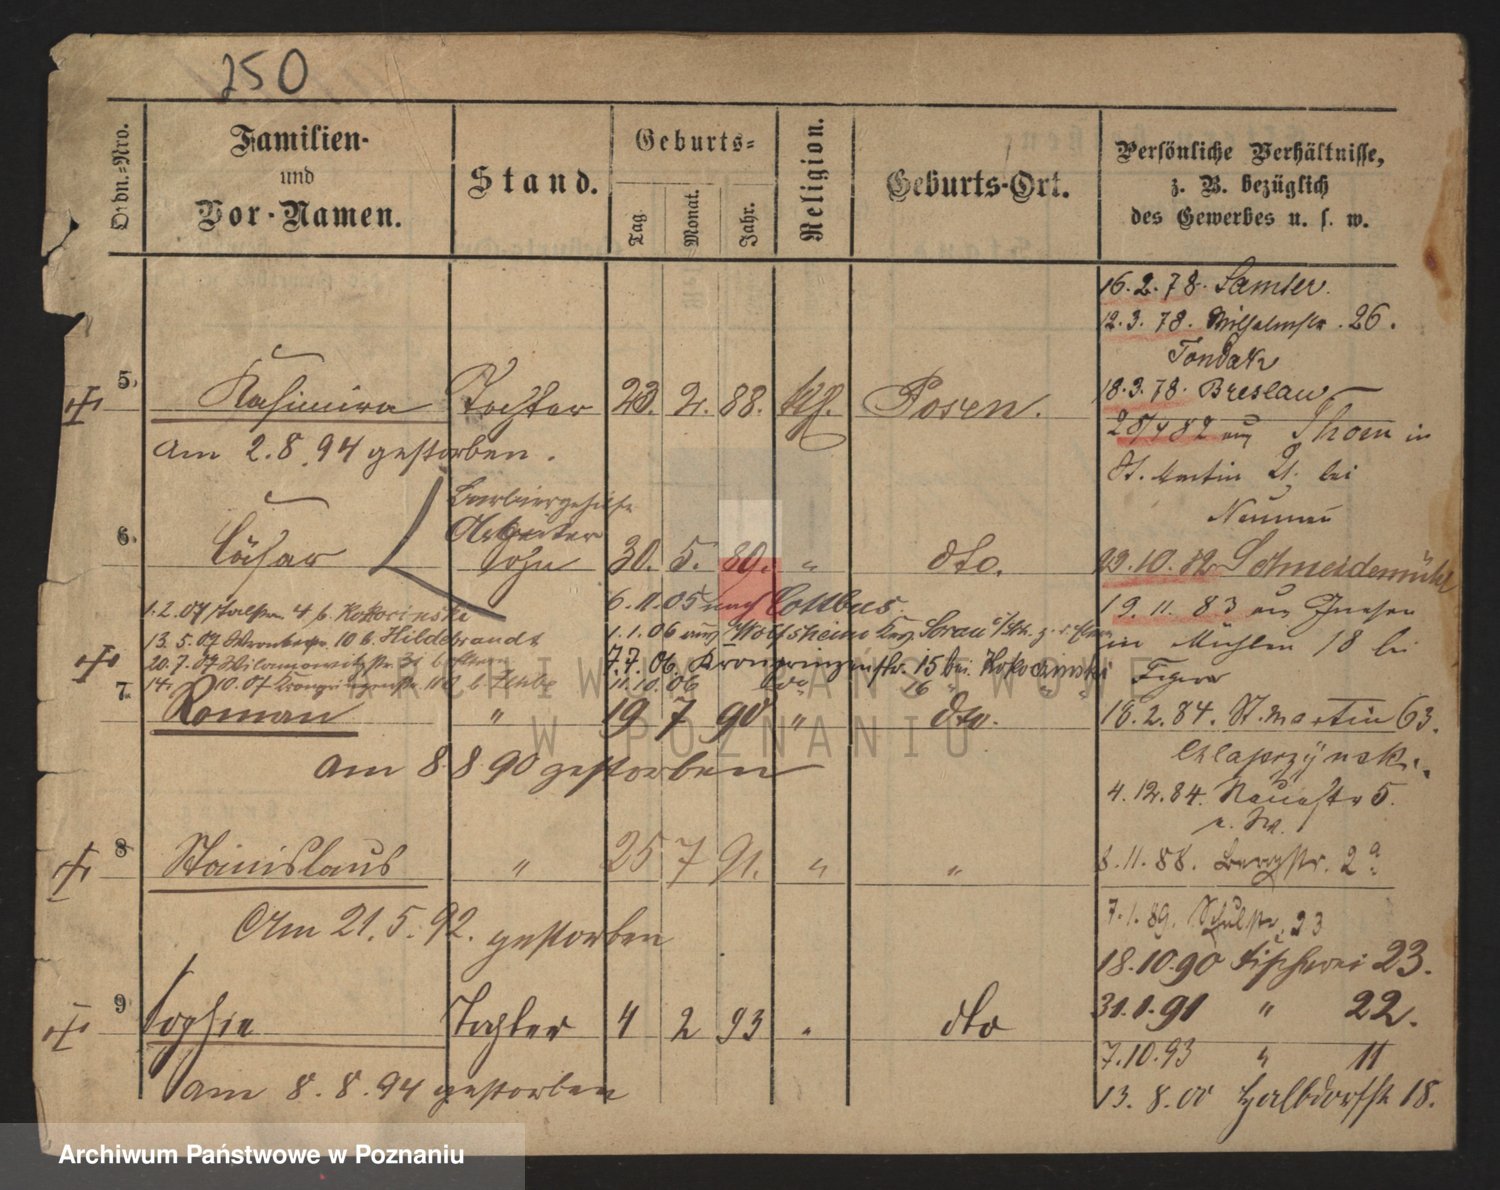 250
Ordn.-Nro.
Familien-
und
Vor-Namen.
Stand.
Geburts-
Tag.
Monat.
Jahr.
Religion.
Geburts-Ort.
Persönliche Verhältnisse,
z. B. bezüglich
des Gewerbes u. s. w.
16.2.78. Samter.
12.3.78. Wilhelmstr. 26.
Tondak
18.3.78. Breslau
5. Kasimira Tochter 23. 2. 88. kth. Posen.
am 2.8.94 gestorben.
28/4 82 aus Thorn in
St. Martin 21. bei
Neuman
Barbiergehilfe
Arbeiter
6. Cäsar Sohn 30. 5. 80. " dto.
23.10.82 Schneidemühl
6.11.05 nach Cottbus.
19.11.83 aus Gnesen
in Mühlen 18 bei
Figura
1.2.07 4 b. Kokocinski
13.5.07 10 b. Hildebrandt
20.7.07 Wilamowitzstr.
14. 10.07 Kronprinzenstr.
1.1.06 aus Wolfshein Krs. Sorau
7.7.06. Kronprinzenstr. 15 bei Kokocinski
11.10.06 16 " "
7. Roman " 19 7 90 " dto.
am 8.8 90 gestorben
18.2.84. St. Martin 63.
Chlapczynski.
4.12.84. Neuestr 5.
8 Stanislaus " 25 7 91. " "
Am 21.5.92. gestorben
8.11.88. Bergstr. 2a.
7.1.89. Schulstr. 23
18.10.90 Fischerei 23.
31.1.91 " 22.
9 Sophie Tochter 4 2 93 " dto
am 8.8.94 gestorben
7.10.93 " 11
13.8.00 Halbdorfstr 18.
ARCHIWUM PAŃSTWOWE
W POZNANIU
Archiwum Państwowe w Poznaniu